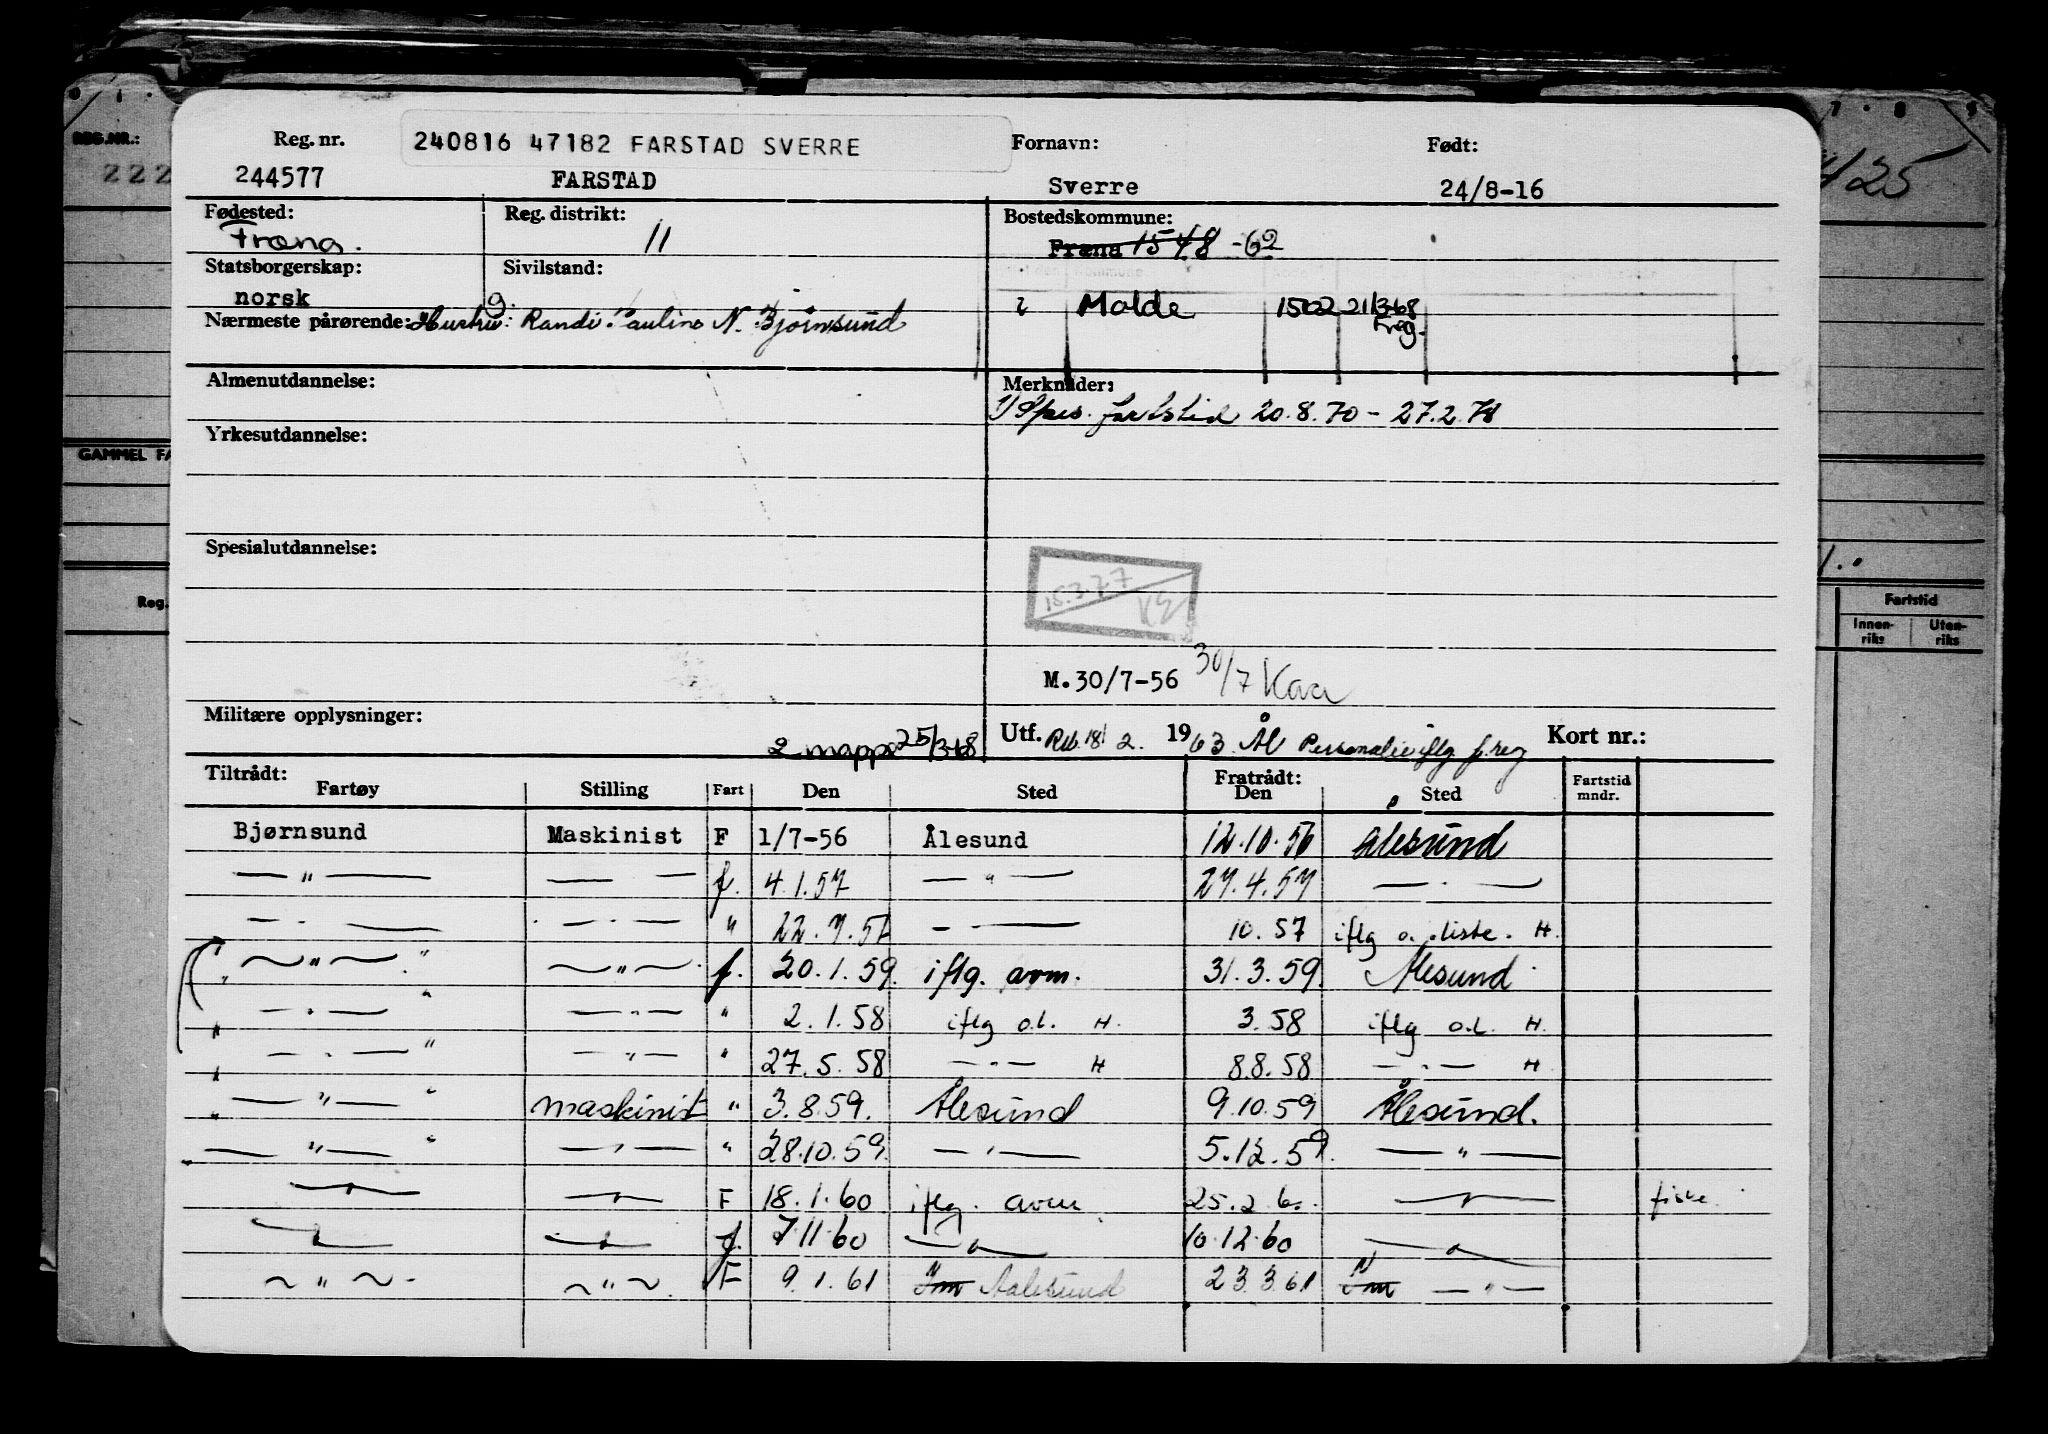 REG.NR.:
222
Reg. nr. 240816 47182 FARSTAD SVERRE Fornavn: Født:
244577 FARSTAD Sverre 24/8-16
Fødested: Reg. distrikt: Bostedskommune:
Fræna. 11 Fræna 1548 -62
Statsborgerskap: Sivilstand:
norsk g. 2 Molde 1502 21/3-68
Freg.
Nærmeste pårørende: Hustru: Randi Pauline N. Bjørnsund
Almenutdannelse: Merknader:
1) Spes. fartstid 20.8.70 - 27.2.78
Yrkesutdannelse:
GAMMEL FA
Spesialutdannelse:
15.3.77
KE
Reg.
Fartstid
Innen-riks Uten-riks
M.30/7-56 30/7 Kaa
Militære opplysninger: 2 mapper 25/3-68 Utf. Reb. 18/2. 1963 Ål Personalie iflg f.reg Kort nr.:
Tiltrådt: Fratrådt:
Fartøy Stilling Fart Den Sted Den Sted Fartstid mndr.
Bjørnsund Maskinist F 1/7-56 Ålesund 12.10.56 Ålesund
— " — — — f. 4.1.57 — " — 27.4.57 — " —
— " — — " — " 22.7.57 — — 10.57 iflg o. liste. H.
" — " — " — " — f. 20.1.59. iflg. avm. 31.3.59. Ålesund
" — " — " — " — " 2.1.58 iflg o.l. H. 3.58 iflg o.l. H.
" — " — " — " — " 27.5.58 — " — H 8.8.58 — " — H
" — " — " maskinist " 3.8.59. Ålesund 9.10.59 Ålesund.
— " — " — " — " 28.10.59. — " — 5.12.59. — " —
— " — — " — F 18.1.60 iflg. avm. 25.2.60. — " — fiske.
— " — — " — f. 7.11.60 — " — 10.12.60 — " —
— " — — " — F 9.1.61 Aalesund 23.3.61 — " —